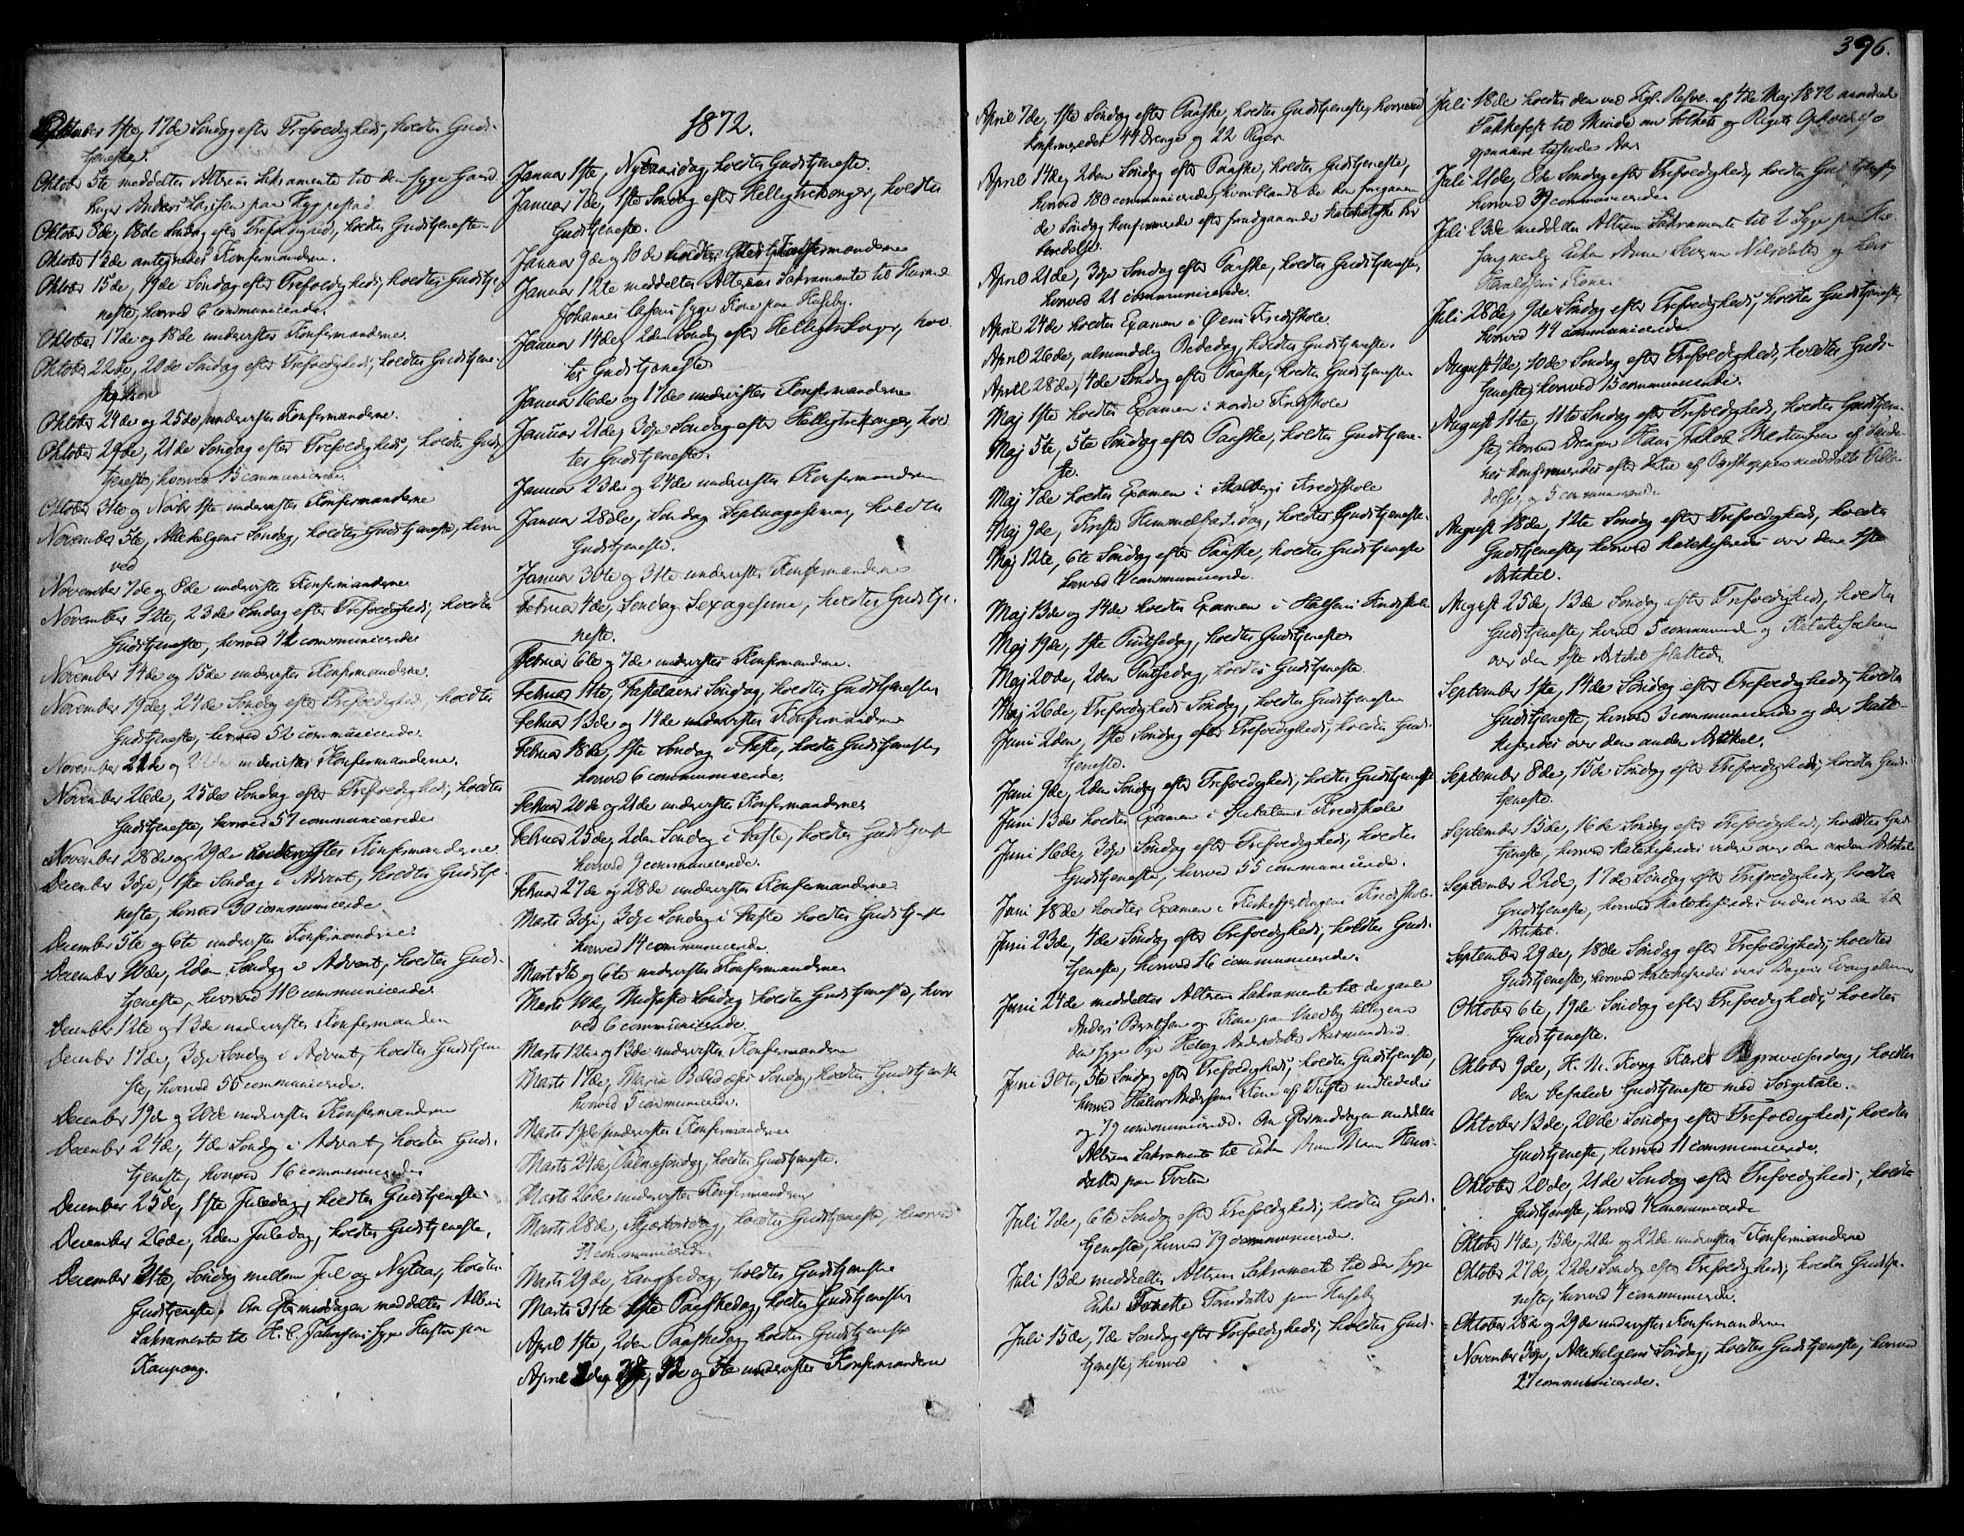 396.
Oktober 1ste, 17de Søndag efter Trefoldighed, holdtes Guds-
tjeneste.
Oktober 5te meddeltes Alterens Sakramente til den syge Gaard
bruger Anders Larsen paa
Oktober 8de, 18de Søndag efter Trefoldighed, holdtes Gudstjeneste
Oktober 13de antegnedes Konfirmanderne.
Oktober 15de, 19de Søndag efter Trefoldighed, holdtes Gudstje-
neste, hvorved 6 communicerede.
Oktober 17de og 18de undervistes Konfirmanderne.
Oktober 22de, 20de Søndag efter Trefoldighed, holdtes Gudstjene-
ste
Oktober 24de og 25de undervistes Konfirmanderne.
Oktober 29de, 21de Søndag efter Trefoldighed, holdtes Guds
tjeneste, hvorved 15 communicerede.
Oktober 31te og Novbr 1ste undervistes Konfirmanderne
November 5te, Allehelgens Søndag, holdtes Gudstjeneste, hvor
ved
November 7de og 8de undervistes Konfirmanderne
November 12te, 23de Søndag efter Trefoldighed, holdtes
Gudstjeneste, hvorved 72 communicerede
November 14de og 15de undervistes Konfirmanderne.
November 19de, 24de Søndag efter Trefoldighed, holdtes
Gudstjeneste, hvorved 52 communicerede.
November 21de og undervistes Konfirmanderne.
November 26de, 25de Søndag efter Trefoldighed, holdtes
Gudstjeneste, hvorved 57 communicerede
November 28de og 29de undervistes Konfirmanderne.
December 3dje, 1ste Søndag i Advent, holdtes Gudstje-
neste, hvorved 30 communicerede
December 5te og 6te undervistes Konfirmanderne
December 10de, 2den Søndag i Advent, holdtes Guds-
tjeneste, hvorved 110 communicerede
December 12te og 13de undervistes Konfirmanderne
December 17de, 3dje Søndag i Advent, holdtes Gudstjene
ste, hvorved 55 communicerede.
December 19de og 20de undervistes Konfirmanderne
December 24de, 4de Søndag i Advent, holdtes Guds-
tjeneste, hvorved 16 communicerede
December 25de, 1ste Juledag, holdtes Gudstjeneste.
December 26de, 2den Juledag, holdtes Gudstjeneste.
December 31te, Søndag mellem Jul og Nytaar, holdtes
Gudstjeneste. Om Eftermiddagen meddeltes Alterens
Sakramente til H. C. Johnsens syge Hustru paa
Kaupang.
1872.
Januar 1ste, Nytaarsdag, holdtes Gudstjeneste.
Januar 7de, 1ste Søndag efter Helligtrekonger, holdtes
Gudstjeneste.
Januar 9de og 10de undervistes Konfirmanderne
Januar 12te meddeltes Alterens Sakramente til Husmd
Johannes Olsens syge Kone paa Huseby.
Januar 14de, 2den Søndag efter Helligtrekonger, hold
tes Gudstjeneste
Januar 16de og 17de undervistes Konfirmanderne
Januar 21de, 3dje Søndag efter Helligtrekonger, hold
tes Gudstjeneste.
Januar 23de og 24de undervistes Konfirmanderne
Januar 28de, Søndag Septuagesima, holdtes
Gudstjeneste.
Januar 30te og 31te undervistes Konfirmanderne
Februar 4de, Søndag Sexagesima, holdtes Gudstje-
neste.
Februar 6te og 7de undervistes Konfirmanderne.
Februar 11te, Fastelavns Søndag, holdtes Gudstjeneste
Februar 13de og 14de undervistes Konfirmanderne
Februar 18de, 1ste Søndag i Faste, holdtes Gudstjeneste,
hvorved 6 communicerede.
Februar 20de og 21de undervistes Konfirmanderne
Februar 25de, 2den Søndag i Faste, holdtes Gudstjeneste
hvorved 9 communicerede.
Februar 27de og 28de undervistes Konfirmanderne
Marts 3dje, 3dje Søndag i Faste holdtes Gudstjeneste
hvorved 14 communicerede.
Marts 5te og 6te undervistes Konfirmanderne
Marts 10de, Midfaste Søndag holdtes Gudstjeneste, hvor
ved 6 communicerede.
Marts 12te og 13de undervistes Konfirmanderne
Marts 17de, Maria Bebudelses Søndag, holdtes Gudstjeneste
hvorved 5 communicerede.
Marts 19de undervistes Konfirmanderne
Marts 24de, Palmesøndag, holdtes Gudstjeneste.
Marts 26de undervistes Konfirmanderne
Marts 28de, Skjærtorsdag, holdtes Gudstjeneste, hvorved
communicerede.
Marts 29de, Langfredag, holdtes Gudstjeneste
Marts 31te 1ste Paaskedag, holdtes Gudstjeneste
April 1ste, 2den Paaskedag holdtes Gudstjeneste
April 2den, 3dje, 4de og 5te undervistes Konfirmanderne
April 7de, 1ste Søndag efter Paaske, holdtes Gudstjeneste, hvorved
konfirmeredes 44 Drenge og 22 Piger
April 14de, 2den Søndag efter Paaske, holdtes Gudstjeneste,
hvorved 180 communicerede, hvoriblandt de den foregaaen
de Søndag Konfirmerede efter forudgaaende Kateketiske For
beredelse.
April 21de, 3dje Søndag efter Paaske, holdtes Gudstjeneste,
hvorved 21 communicerede.
April 24de holdtes Examen i Øens Kredsskole.
April 26de, almindelig Bededag, holdtes Gudstjeneste.
April 28de, 4de Søndag efter Paaske, holdtes Gudstjeneste
Maj 1ste holdtes Examen i nordre Kredsskole
Maj 5te, 5te Søndag efter Paaske, holdtes Gudstjene-
ste.
Maj 7de holdtes Examen i Kredsskole
Maj 9de, Kristi Himmelfartsdag, holdtes Gudstjeneste.
Maj 12te, 6te Søndag efter Paaske, holdtes Gudstjeneste
hvorved 4 communicerede.
Maj 13de og 14de holdtes Examen i Halsens Kredsskole
Maj 19de, 1ste Pintsedag, holdtes Gudstjeneste
Maj 20de, 2den Pintsedag, holdtes Gudstjeneste.
Maj 26de, Trefoldigheds Søndag, holdtes Gudstjeneste
Juni 2den, 1ste Søndag efter Trefoldighed, holdtes Guds-
tjeneste.
Juni 9de, 2den Søndag efter Trefoldighed, holdtes Gudstjeneste
Juni 13de holdtes Examen i Kredsskole
Juni 16de, 3dje Søndag efter Trefoldighed, holdtes
Gudstjeneste, hvorved 55 communicerede.
Juni 18de holdtes Examen i Kirkebygdens Kredsskole.
Juni 23de, 4de Søndag efter Trefoldighed, holdtes Guds-
tjeneste, hvorved 16 communicerede.
Juni 24de meddeltes Alterens Sakramente til de gamle
Anders Berntsen og Kone paa tilligemed
den syge Pige Andersdatter
Juni 30te, 5te Søndag efter Trefoldighed, holdtes Gudstjeneste,
hvorved Halvor Andersens Kone af indlededes
og 79 communicerede. Om Eftermiddagen meddeltes
Alterens Sakramente til Enken Anne Marie
datter paa Tveten
Juli 7de, 6te Søndag efter Trefoldighed, holdtes Guds-
tjeneste, hvorved 79 communicerede.
Juli 13de meddeltes Alterens Sakramente til den syge
Enke paa Huseby
Juli 15de, 7de Søndag efter Trefoldighed, holdtes Guds-
tjeneste, hvorved
Juli 18de holdtes den ved Kgl. Resol. af 4de Maj 1872 anordnede
Takkefest til Minde om Folkets og Rigets
gjennem tusinde Aar
Juli 21de, 8de Søndag efter Trefoldighed, holdtes Gudstjeneste
hvorved 39 communicerede.
Juli 23de meddeltes Alterens Sakramente til 2 Syge paa
Enken Anne Nilsdatter og Lars
Kone.
Juli 28de, 9de Søndag efter Trefoldighed, holdtes Gudstjeneste,
hvorved 44 communicerede.
August 4de, 10de Søndag efter Trefoldighed, holdtes Guds-
tjeneste, hvorved 15 communicerede.
August 11te, 11te Søndag efter Trefoldighed, holdtes Gudstjene
ste, hvorved Drengen Hans Jakob Mortensen af
nes konfirmeredes efter dertil af Biskoppen meddelte Tilla-
delse, og 5 communicerede
August 18de, 12te Søndag efter Trefoldighed, holdtes
Gudstjeneste, hvorved katekiseredes over den 1ste
Artikel.
August 25de, 13de Søndag efter Trefoldighed, holdtes
Gudstjeneste, hvorved 5 communicerede og Katekisation
over den 1ste Artikel sluttedes
September 1ste, 14de Søndag efter Trefoldighed, holdtes
Gudstjeneste, hvorved 3 communicerede og der kate-
kiseredes over den anden Artikel.
September 8de, 15de Søndag efter Trefoldighed, holdtes Guds-
tjeneste.
September 15de, 16de Søndag efter Trefoldighed, holdtes Guds-
tjeneste, hvorved katekiseredes videre over den anden Artikel
September 22de, 17de Søndag efter Trefoldighed, holdtes
Gudstjeneste, hvorved katekiseredes videre over den
Artikel.
September 29de, 18de Søndag efter Trefoldighed, holdtes
Gudstjeneste, hvorved katekiseredes over Dagens Evangelium
Oktober 6te, 19de Søndag efter Trefoldighed, holdtes
Gudstjeneste.
Oktober 9de, H. M. Kong Karls Begravelsesdag, holdtes
den befalede Gudstjeneste med Sørgetale.
Oktober 13de, 20de Søndag efter Trefoldighed, holdtes
Gudstjeneste, hvorved 11 communicerede.
Oktober 20de, 21de Søndag efter Trefoldighed, holdtes
Gudstjeneste, hvorved 4 communicerede
Oktober 14de, 15de, 21de og 22de undervistes Konfirmanderne
Oktober 27de, 22de Søndag efter Trefoldighed, holdtes Gudstje-
neste, hvorved 4 communicerede.
Oktober 28de og 29de undervistes Konfirmanderne
November 3dje, Allehelgens Søndag, holdtes Gudstjeneste, hvorved
27 communicerede.